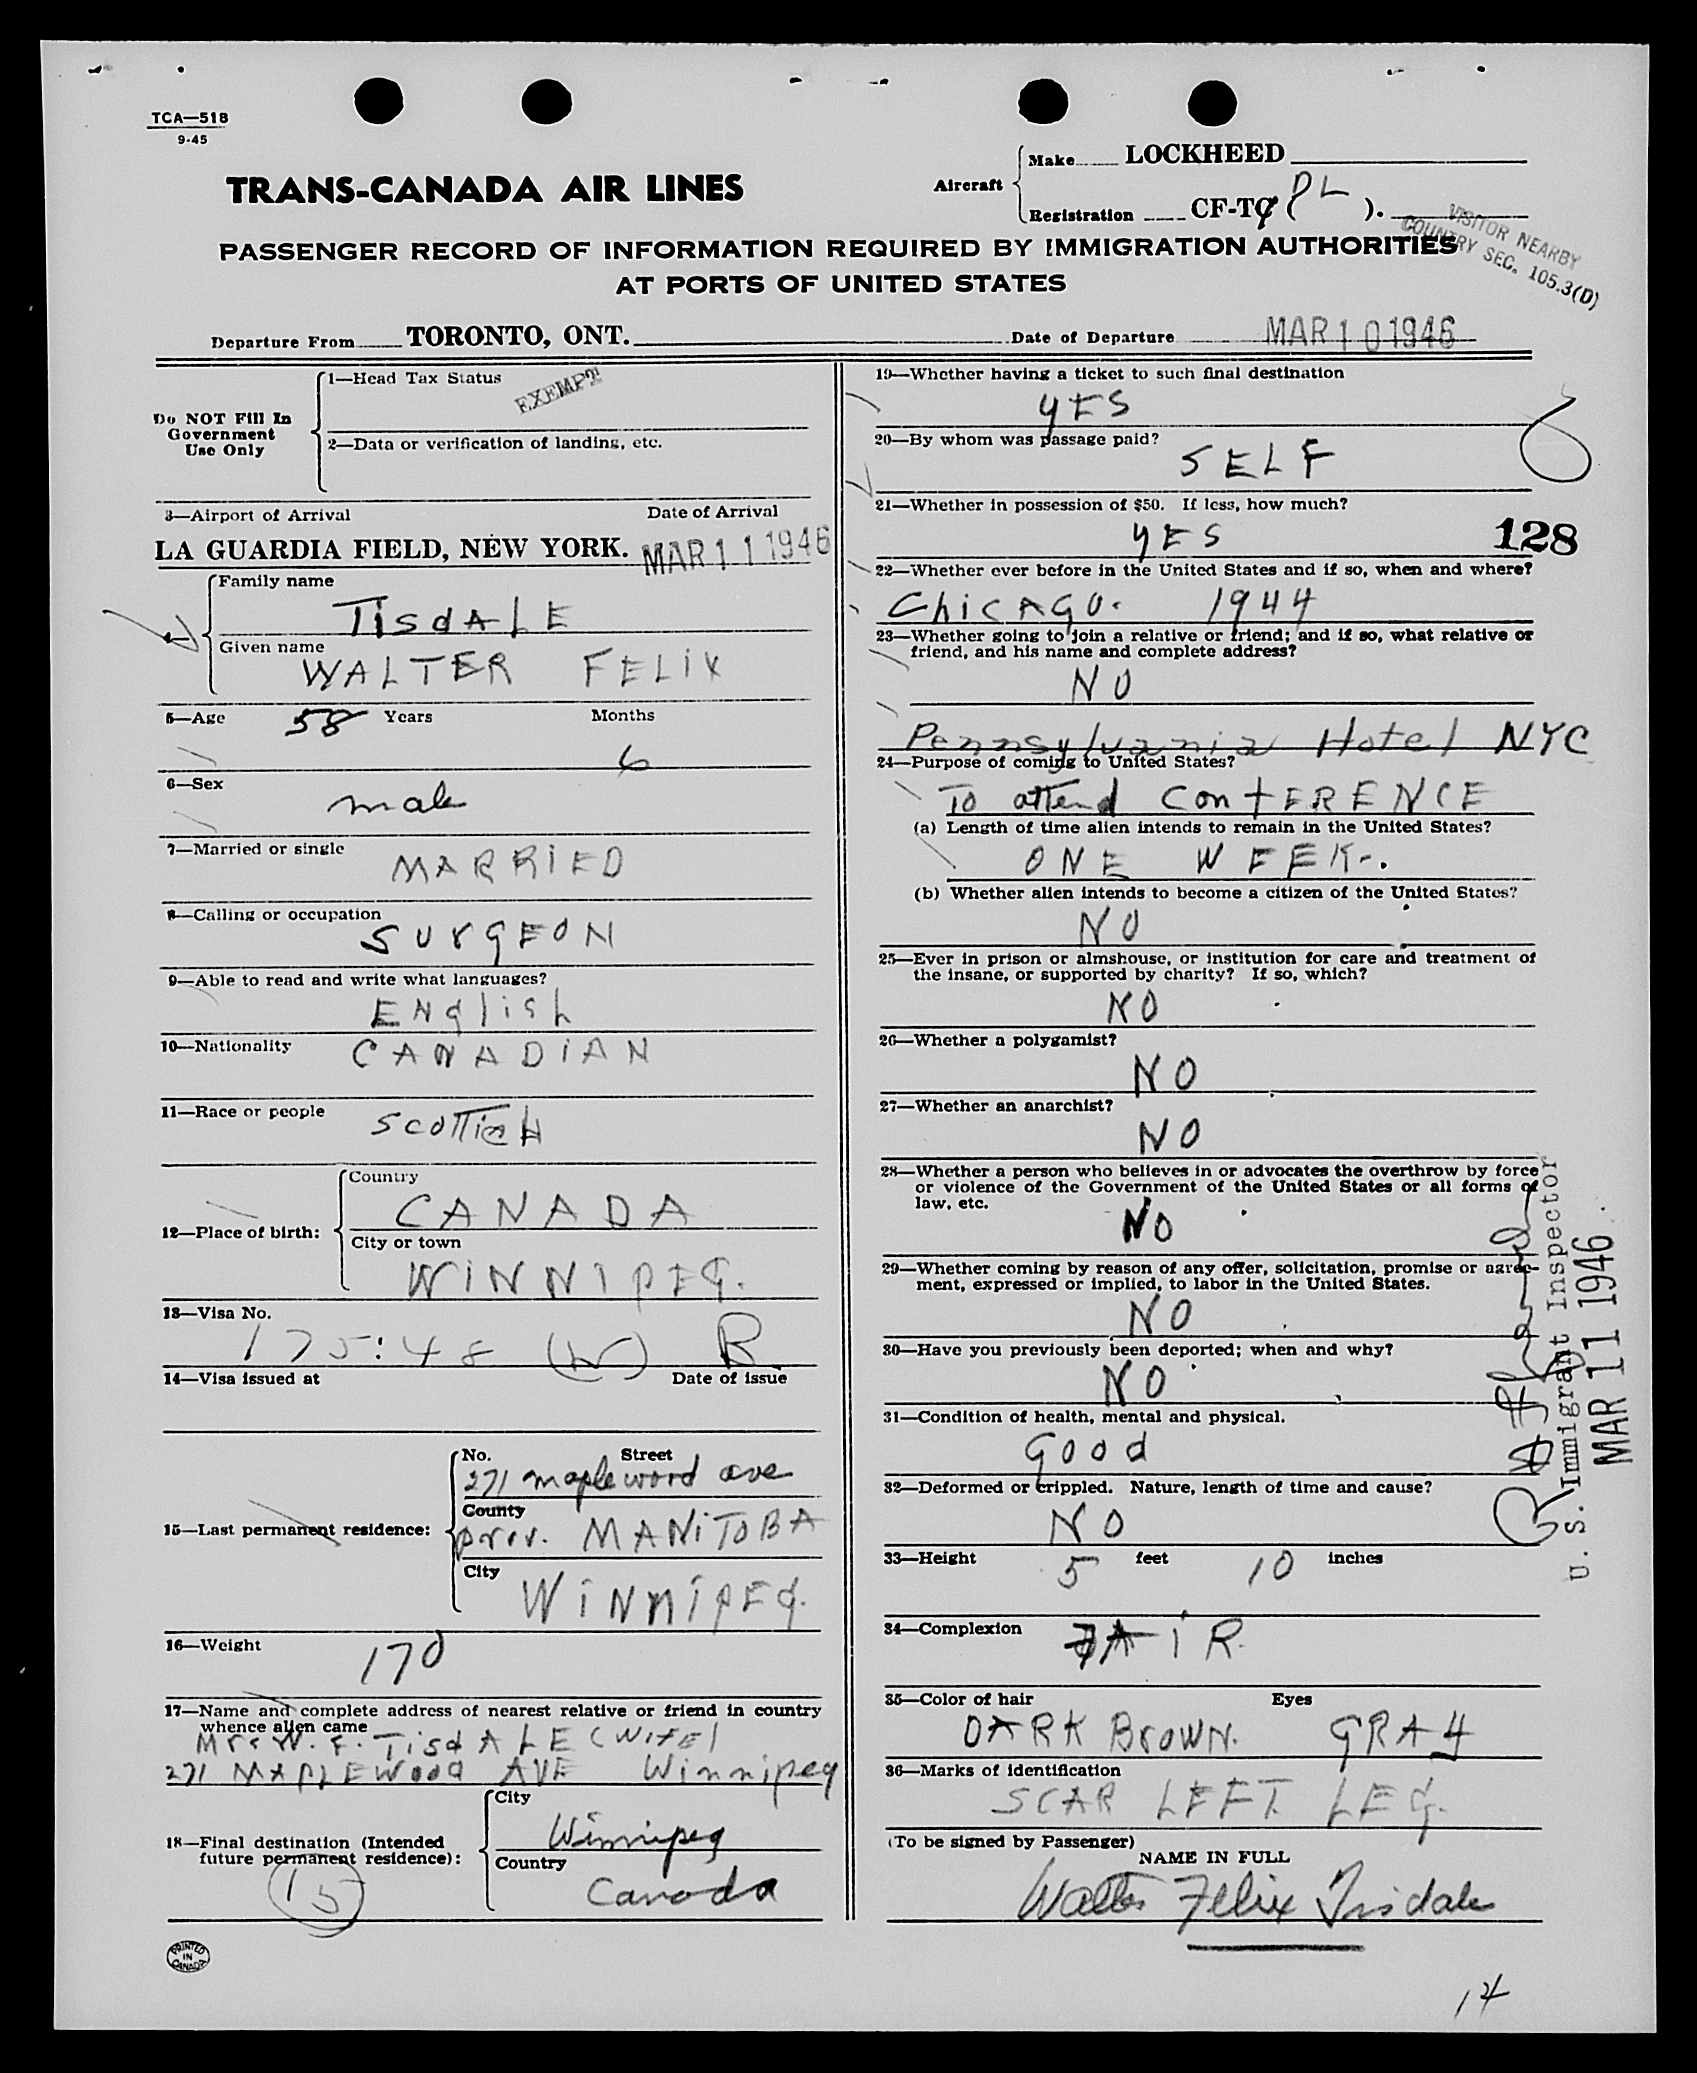 TCA—518
9-45
TRANS-CANADA AIR LINES
Aircraft
Make LOCKHEED
Registration CF-TC ( PL ).
VISITOR NEARBY
COUNTRY SEC. 105.3(D)
PASSENGER RECORD OF INFORMATION REQUIRED BY IMMIGRATION AUTHORITIES
AT PORTS OF UNITED STATES
Departure From TORONTO, ONT. Date of Departure MAR 10 1946
Do NOT Fill In
Government
Use Only
1—Head Tax Status EXEMPT
2—Data or verification of landing, etc.
3—Airport of Arrival Date of Arrival
LA GUARDIA FIELD, NEW YORK. MAR 11 1946
Family name
TisdALE
Given name
WALTER FELIX
5—Age 58 Years Months
6
6—Sex
male
7—Married or single
MARRiED
8—Calling or occupation
SUrgEON
9—Able to read and write what languages?
ENglish
10—Nationality CANADiAN
11—Race or people SCOTTiSH
12—Place of birth:
Country
CANADA
City or town
WiNNIPEG.
13—Visa No.
175:48 (W) R
14—Visa issued at Date of issue
15—Last permanent residence:
No. Street
271 maplewood ave
County
prov. MANiTOBA
City
WiNNiPEG.
16—Weight
170
17—Name and complete address of nearest relative or friend in country
whence alien came
Mrs W. F. TisdALE (Wife)
271 MAPLEWood AVE Winnipeg
18—Final destination (Intended
future permanent residence):
City
Winnipeg
Country
Canada
15
PRINTED
IN
CANADA
19—Whether having a ticket to such final destination
YES
20—By whom was passage paid?
SELF
21—Whether in possession of $50. If less, how much?
YES
128
22—Whether ever before in the United States and if so, when and where?
ChiCAGO. 1944
23—Whether going to join a relative or friend; and if so, what relative or
friend, and his name and complete address?
NO
Pennsylvania Hotel NYC
24—Purpose of coming to United States?
To attend ConfERENCE
(a) Length of time alien intends to remain in the United States?
ONE WEEK.
(b) Whether alien intends to become a citizen of the United States?
NO
25—Ever in prison or almshouse, or institution for care and treatment of
the insane, or supported by charity? If so, which?
NO
26—Whether a polygamist?
NO
27—Whether an anarchist?
NO
28—Whether a person who believes in or advocates the overthrow by force
or violence of the Government of the United States or all forms of
law, etc.
NO
29—Whether coming by reason of any offer, solicitation, promise or agree-
ment, expressed or implied, to labor in the United States.
NO
30—Have you previously been deported; when and why?
NO
31—Condition of health, mental and physical.
Good
32—Deformed or crippled. Nature, length of time and cause?
NO
33—Height 5 feet 10 inches
34—Complexion FAiR.
35—Color of hair Eyes
DARK BrOWN. GRAY
36—Marks of identification
SCAR LEFT LEG.
(To be signed by Passenger)
NAME IN FULL
Walter Felix Tisdale
U. S. Immigrant Inspector
MAR 11 1946
14